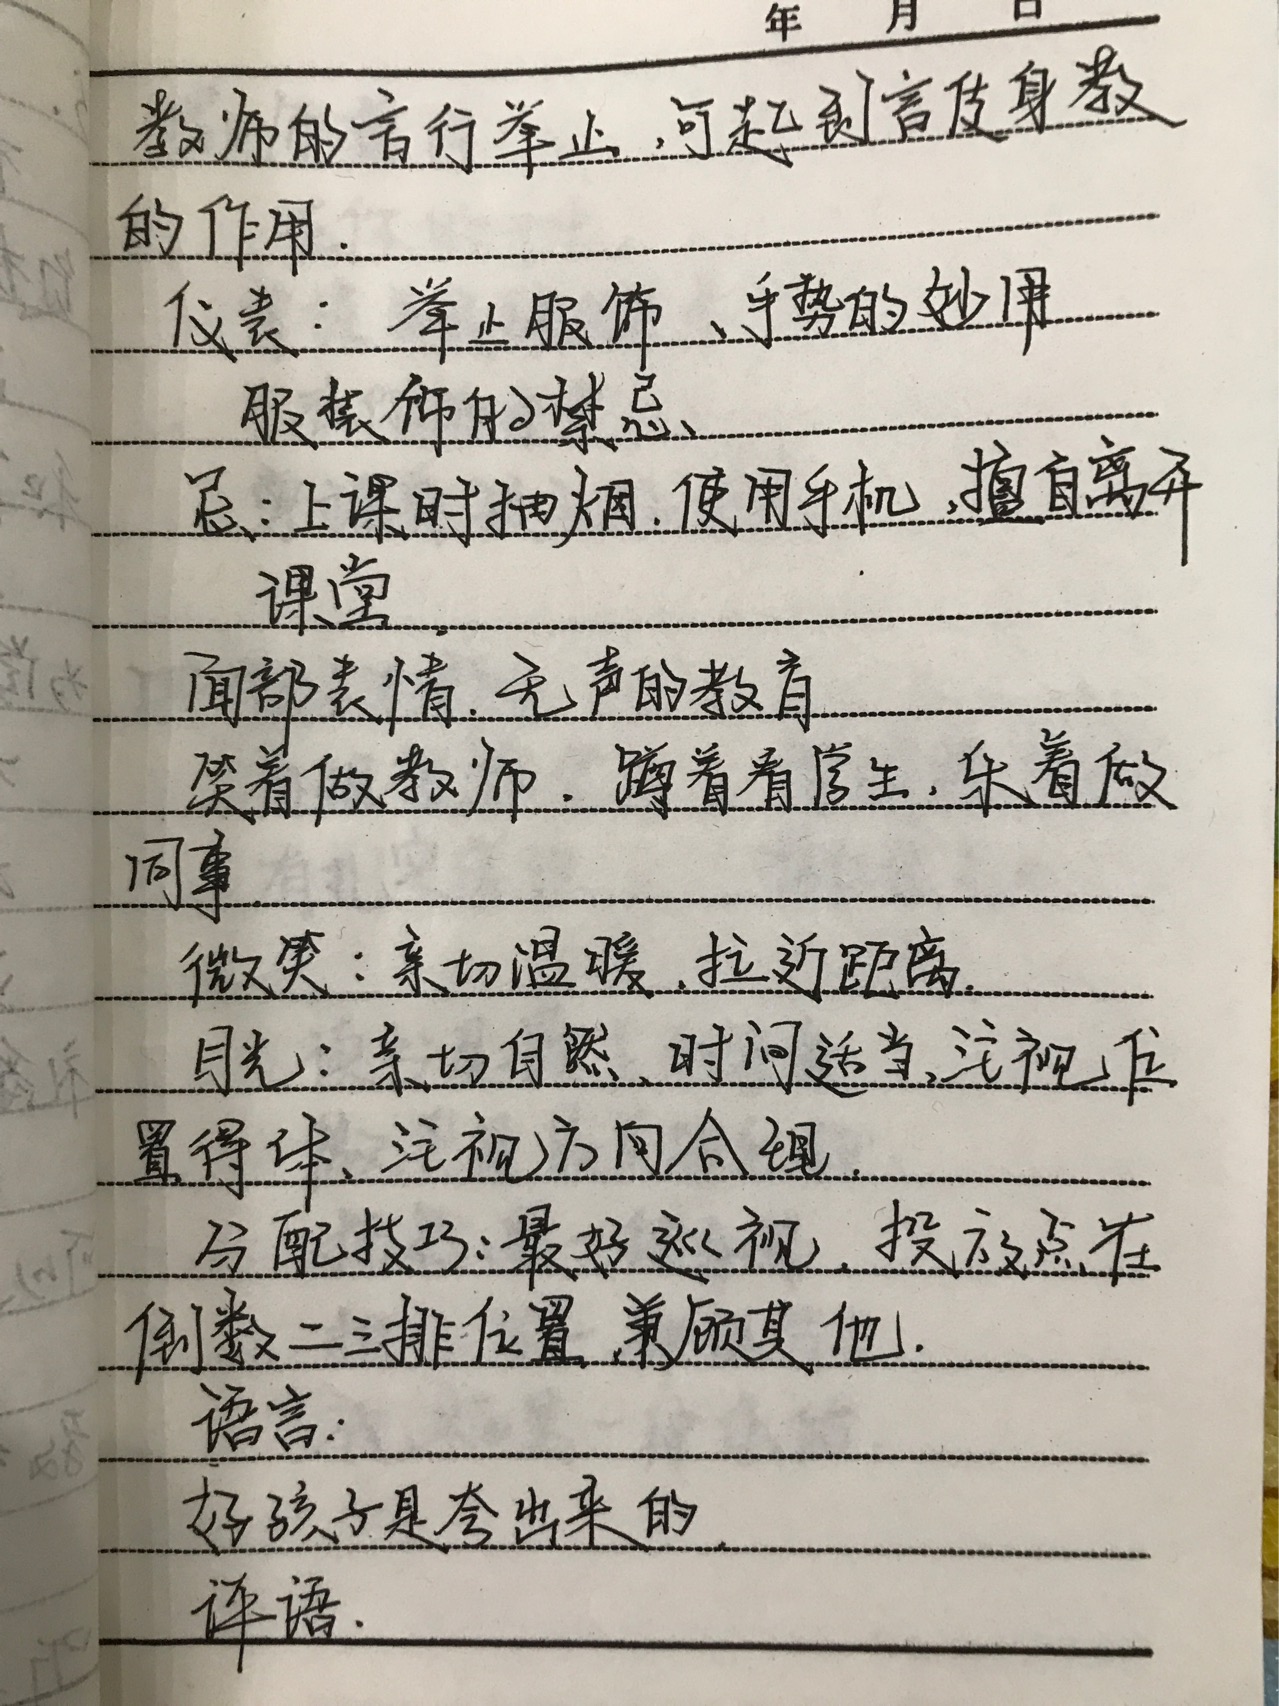 年 月 日
教师的言行举止,可起到言传身教
的作用.
仪表: 举止服饰、手势的妙用
服装饰的禁忌、
忌:上课时抽烟.使用手机,擅自离开
课堂.
面部表情.无声的教育
笑着做教师.蹲着看学生.乐着做
同事.
微笑:亲切温暖,拉近距离.
目光:亲切自然、时间适当、注视位
置得体、注视方向合理.
分配技巧:最好巡视,投放点在
倒数二三排位置,兼顾其他.
语言:
好孩子是夸出来的.
评语.